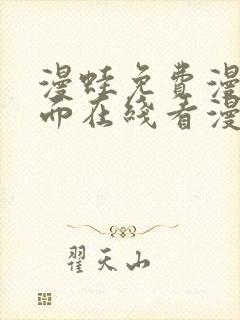 漫蛙免费漫
面在线看漫
翟天山